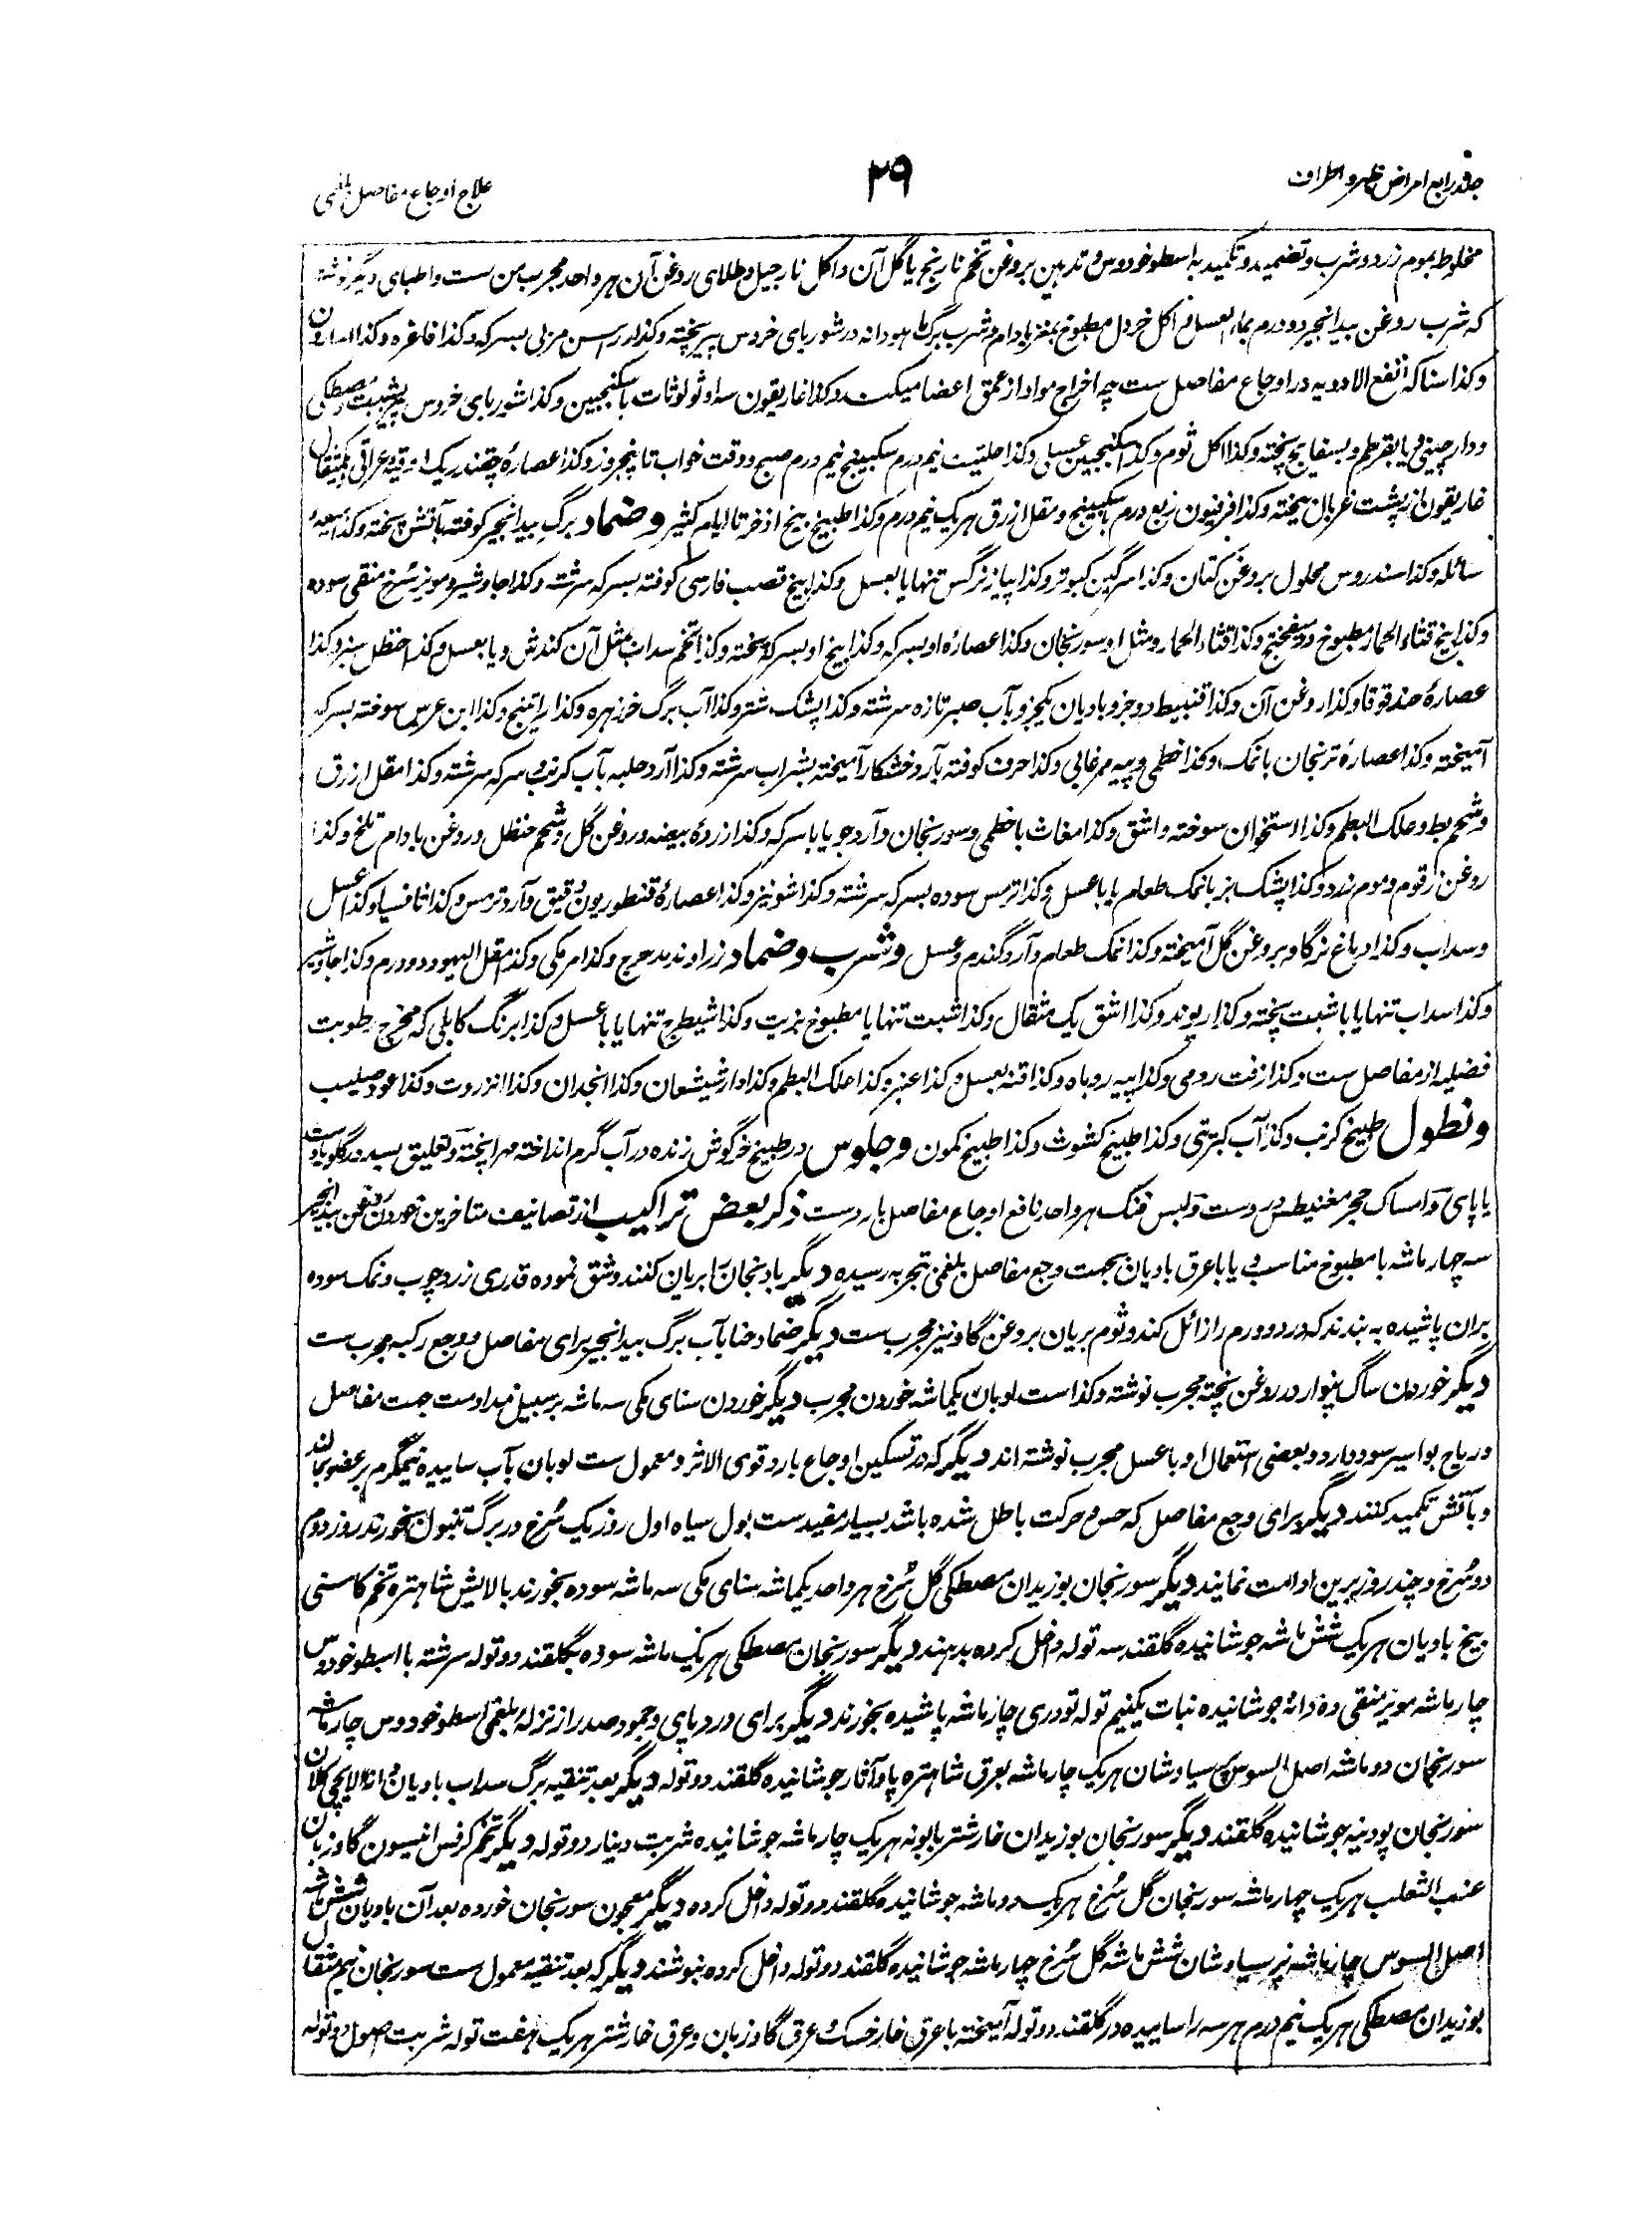 جلد رابع امراض ظهر و اطراف
۲۹
علاج اوجاع مفاصل بلغمی
مخلوط بموم زرد و شرب و تضمید و تکمید به اسطوخودوس و تدهین بروغن تخم نارنج یا گل آن و اکل نارجیل و طلای روغن آن هر واحد مجرب من ست و اطبای دیگر نوشته
که شرب روغن بیدانجیر دو درم بماء العسل و اکل خردل مطبوخ بمغز بادام و شرب برگ ماهودانه در شوربای خروس پیر پخته و کذا راسن مربی بسرکه و کذا فاغره و کذا
و کذا سنا که انفع الادویه در اوجاع مفاصل ست چه اخراج مواد از عمق اعضا میکند و کذا غاریقون سه اوثولوثات با سکنجبین و کذا شوربای خروس پیر بشبت و مصطکی
و دارچینی یا بقرطم و بسفایج پخته و کذا اکل ثوم و کذا سکنجبین عسلی و کذا حلتیت نیم درم سکبینج نیم درم صبح و وقت خواب تا پنجروز و کذا عصارهٔ چقندر یک اوقیه عراقی بمثقال
غاریقون از پشت غربال بیخته و کذا فربیون ربع درم با سکبینج و مقل ازرق هر یک نیم درم و کذا طبیخ بیخ اذخر تا ایام کثیر وضماد برگ بیدانجیر کوفته بآتش پخته و کذا میعهٔ
سائله و کذا سندروس محلول بروغن کتان و کذا سرگین کبوتر و کذا پیاز نرگس تنها یا بعسل و کذا بیخ قصب فارسی کوفته بسرکه سرشته و کذا جاوشیر و مویز سرخ منقی سوده
و کذا بیخ قثاء الحمار مطبوخ در میفختج و کذا قثاء الحمار و مثل او سورنجان و کذا عصارهٔ او بسرکه و کذا بیخ او بسرکه پخته و کذا تخم سداب مثل آن کندش و یا بعسل و کذا حنظل سبز و کذا
عصارهٔ حندقوقا و کذا روغن آن و کذا قنبیط دو جزو بادیان یکجزو بآب صبر تازه سرشته و کذا پشک شتر و کذا آب برگ خرزهره و کذا راتینج و کذا ابن عرس سوخته بسرکه
آمیخته و کذا عصارهٔ ترنجان بانمک و کذا خطمی و پیه مرغابی و کذا حرف کوفته بآرد خشکار آمیخته بشراب سرشته و کذا آرد حلبه بآب کرنب و سرکه سرشته و کذا مقل ازرق
و شحم بط و علک البطم و کذا استخوان سوخته و اشق و کذا مغاث با خطمی و سورنجان و آرد جو یا با سرکه و کذا زردهٔ بیضه و روغن گل و شحم حنظل و روغن بادام تلخ و کذا
روغن زقوم و موم زرد و کذا پشک بز بانمک طعام یا با عسل و کذا ترمس سوده بسرکه سرشته و کذا شونیز و کذا عصارهٔ قنطوریون دقیق و آرد ترمس و کذا ثافسیا و کذا عسل
و سداب و کذا دماغ نرگاو بروغن گل آمیخته و کذا نمک طعام و آرد گندم و عسل وشرب وضماد زراوند مدحرج و کذا مر مکی و کذا مقل الیهود دو درم و کذا جاوشیر
و کذا سداب تنها یا با شبت پخته و کذا ریوند و کذا اشق یک مثقال و کذا شبت تنها یا مطبوخ بزیت و کذا شیطرج تنها یا با عسل و کذا برنگ کابلی که مخرج رطوبت
فضلیه از مفاصل ست و کذا زفت رومی و کذا پیه روباه و کذا قنه بعسل و کذا عنبر و کذا علک البطم و کذا دارشیشعان و کذا انجدان و کذا انزروت و کذا عود صلیب
ونطول طبیخ کرنب و کذا آب کبریتی و کذا طبیخ کشوث و کذا طبیخ کمون وجلوس در طبیخ خرگوش زنده در آب گرم انداخته مهرا پخته و تعلیق بسد در گلو یا دست
یا پای و امساک حجر مغنیطس در دست و لبس فنک هر واحد نافع اوجاع مفاصل بارد ست ذکر بعض تراکیب از تصانیف متاخرین خوردن روغن بیدانجیر
سه چهار ماشه با مطبوخ مناسب و یا با عرق بادیان بجهت وجع مفاصل بلغمی بتجربه رسیده دیگر بادنجان را بریان کنند و شق نموده قدری زردچوب و نمک سوده
بران پاشیده به بندند که درد و ورم را زائل کند و ثوم بریان بروغن گاو نیز مجرب ست دیگر ضماد حنا بآب برگ بیدانجیر برای مفاصل و وجع رکبه مجرب ست
دیگر خوردن ساگ پنوار در روغن پخته مجرب نوشته و کذا ست لوبان یکماشه خوردن مجرب دیگر خوردن سنای مکی سه ماشه بر سبیل مداومت جهت مفاصل
و ریاح بواسیر سود دارد و بعضی استعمال او با عسل مجرب نوشته اند دیگر که در تسکین اوجاع بارد قوی الاثر و معمول ست لوبان بآب ساییده نیمگرم بر عضو بمالند
و بآتش تکمید کنند دیگر برای وجع مفاصل که حس و حرکت باطل شده باشد بسیار مفید ست بول سیاه اول روز یک سرخ در برگ تنبول بخورند روز دوم
دو سرخ و چند روز برین ادامت نمایند دیگر سورنجان بوزیدان مصطکی گل سرخ هر واحد یکماشه سنای مکی سه ماشه سوده بخورند بالایش شاهتره تخم کاسنی
بیخ بادیان هر یک شش ماشه جوشانیده گلقند سه توله داخل کرده بدهند دیگر سورنجان مصطکی هر یک ماشه سوده بگلقند دو توله سرشته با اسطوخودوس
چار ماشه مویز منقی ده دانه جوشانیده نبات یکنیم توله تودری چار ماشه پاشیده بخورند دیگر برای درد پای و جمود صدر از نزلهٔ بلغمی اسطوخودوس چار ماشه
سورنجان دو ماشه اصل السوس پرسیاوشان هر یک چار ماشه بعرق شاهتره پاو آثار جوشانیده گلقند دو توله دیگر بعد تنقیه برگ سداب بادیان دانه الایچی کلان
سورنجان پودینه جوشانیده گلقند دیگر سورنجان بوزیدان خارشتر بابونه هر یک چار ماشه جوشانیده شربت دینار دو توله دیگر تخم کرفس انیسون گاوزبان
عنب الثعلب هر یک چهار ماشه سورنجان گل سرخ هر یک دو ماشه جوشانیده گلقند دو توله داخل کرده دیگر معجون سورنجان خورده بعد آن بادیان شش ماشه
اصل السوس چار ماشه پرسیاوشان شش ماشه گل سرخ چهار ماشه جوشانیده گلقند دو توله داخل کرده بنوشند دیگر که بعد تنقیه معمول ست سورنجان نیم مثقال
بوزیدان مصطکی هر یک نیم درم هر سه را ساییده در گلقند دو توله آمیخته با عرق خارخسک و عرق گاوزبان و عرق خارشتر هر یک هفت توله شربت اصول دو توله